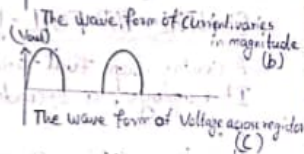 The wave form of current varies
in magnitude
(b)
(Vout)
The wave form of Voltage across register
(C)